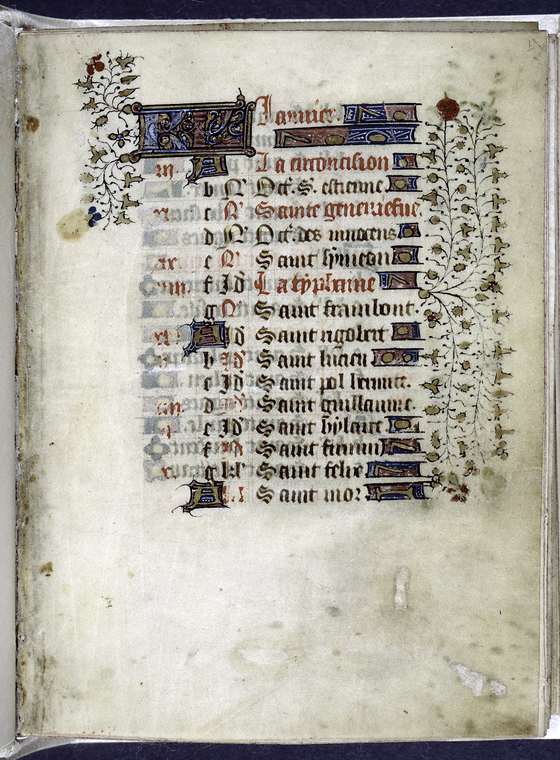 KL Januier.
iii. A La circoncision
b N Oct. S. estienne
xi. c N Sainte geneviefue.
d N Oct. des innocens
xix. e N Saint symeon
viii. f Id La typhaine
g N Saint frambout.
A Id Saint rigobert
b Id Saint lucien
c Id Saint pol hermite.
d Id Saint guillaume.
e Id Saint hylaire
f Id Saint firmin
g kl' Saint felix
A Saint mor